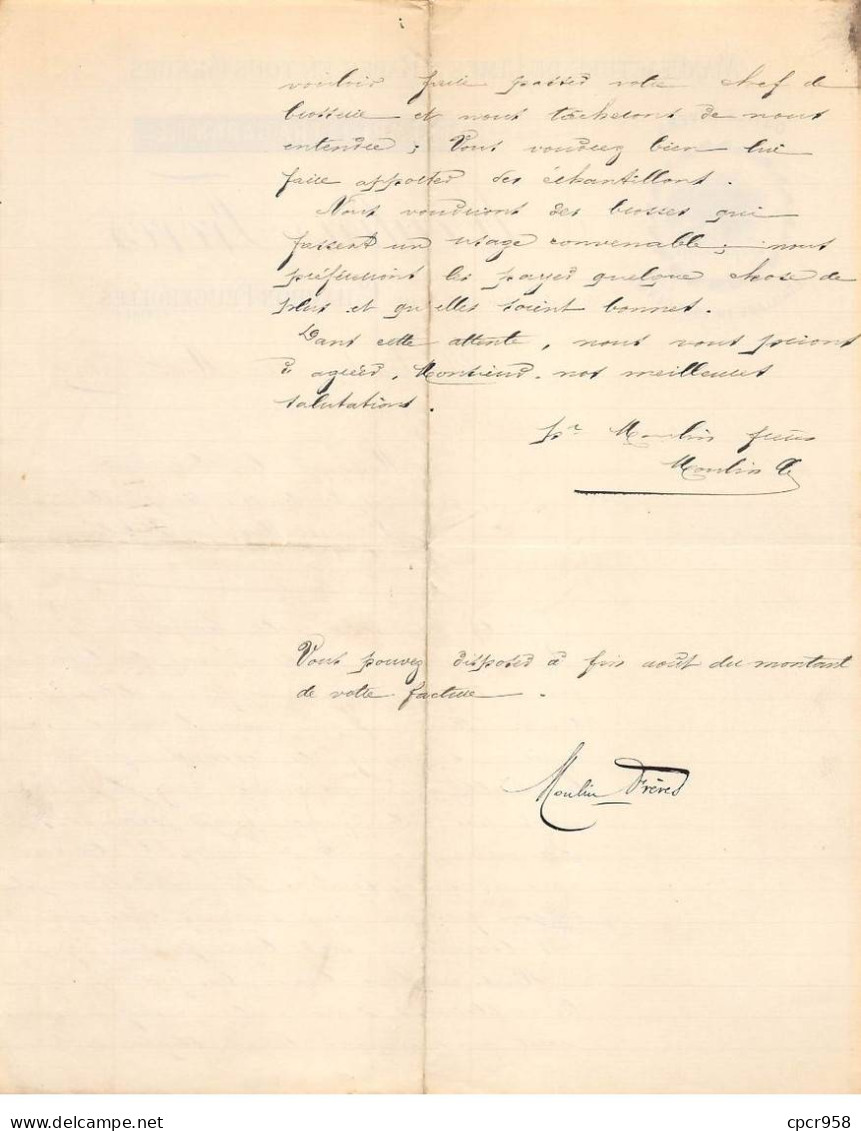 vouloir faire passer votre chef de
brosserie et nous tâcherons de nous
entendre ; Vous voudrez bien lui
faire apporter des échantillons.
Nous voudrions des brosses qui
fassent un usage convenable ; nous
préférerions les payer quelque chose de
plus et qu'elles soient bonnes.
Dans cette attente, nous vous prions
d'agréer, Monsieur, nos meilleures
salutations.
pr Moulin frères
Moulin
Vous pouvez disposer à fin août du montant
de votre facture.
Moulin Frères
delcampe.net
cpcr958